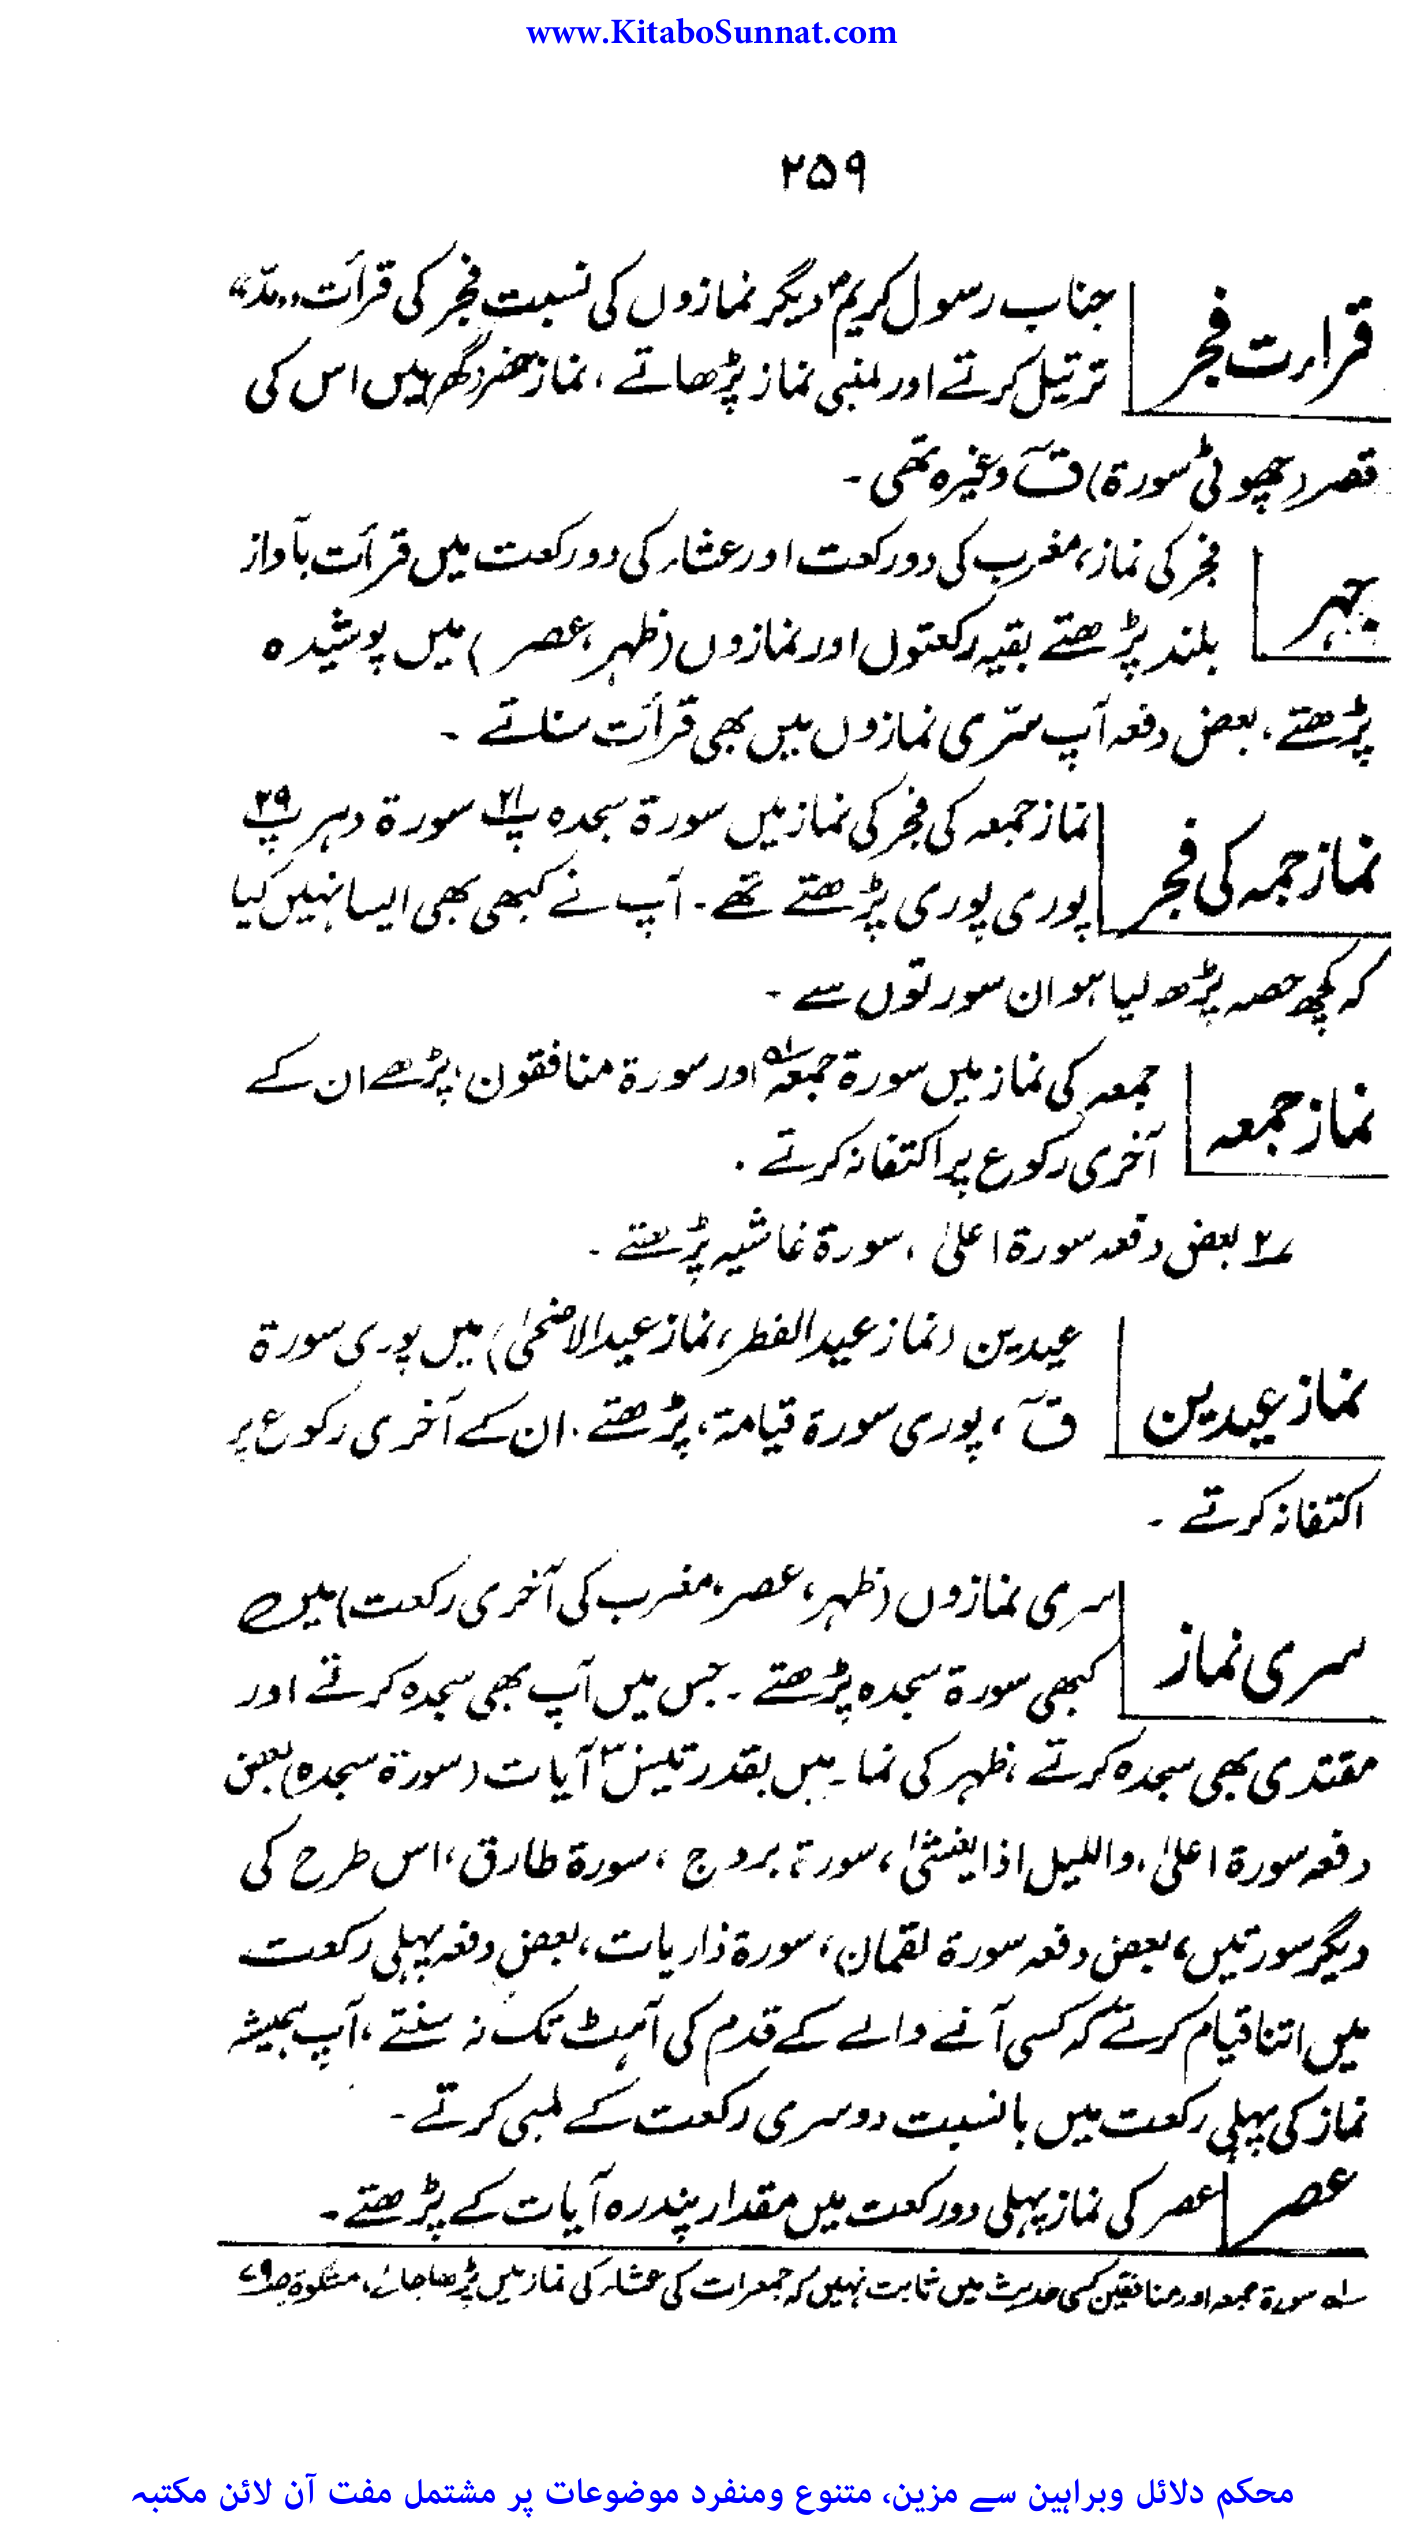 www.KitaboSunnat.com
۲۵۹
قراءت فجر
جناب رسول کریمؐ دیگر نمازوں کی نسبت فجر کی قرأت "مدّ"
ترتیل کرتے اور لمبی نماز پڑھاتے ، نماز حضر (گھر) میں اس کی
قصر (چھوٹی سورۃ) قٓ وغیرہ تھی ۔
جہر
فجر کی نماز، مغرب کی دو رکعت اور عشاء کی دو رکعت میں قرأت بآواز
بلند پڑھتے بقیہ رکعتوں اور نمازوں (ظہر، عصر) میں پوشیدہ
پڑھتے ، بعض دفعہ آپ سّری نمازوں میں بھی قرأت سناتے ۔
نماز جمعہ کی فجر
نماز جمعہ کی فجر کی نماز میں سورۃ سجدہ پ۲۱ سورۃ دہر پ۲۹
پوری پوری پڑھتے تھے ۔ آپ نے کبھی بھی ایسا نہیں کیا
کہ کچھ حصہ پڑھ لیا ہو ان سورتوں سے ۔
نماز جمعہ
جمعہ کی نماز میں سورۃ جمعہ اور سورۃ منافقون پڑھے ان کے
آخری رکوع پر اکتفا نہ کرتے ۔
۲؎ بعض دفعہ سورۃ اعلیٰ ، سورۃ غاشیہ پڑھتے ۔
نماز عیدین
عیدین (نماز عید الفطر، نماز عید الاضحیٰ) میں پوری سورۃ
قٓ ، پوری سورۃ قیامۃ، پڑھتے ۔ ان کے آخری رکوع پر
اکتفا نہ کرتے ۔
سری نماز
سری نمازوں (ظہر، عصر، مغرب کی آخری رکعت) میں
کبھی سورۃ سجدہ پڑھتے ۔ جس میں آپ بھی سجدہ کرتے اور
مقتدی بھی سجدہ کرتے ، ظہر کی نماز میں بقدر تیس۳۰ آیات (سورۃ سجدہ) بعض
دفعہ سورۃ اعلیٰ، واللیل اذا یغشیٰ ، سورۃ بروج ، سورۃ طارق، اس طرح کی
دیگر سورتیں، بعض دفعہ سورۃ لقمان، سورۃ ذاریات، بعض دفعہ پہلی رکعت
میں اتنا قیام کرتے کہ کسی آنے والے کے قدم کی آہٹ تک نہ سنتے ، آپ ہمیشہ
نماز کی پہلی رکعت میں بانسبت دوسری رکعت کے لمبی کرتے ۔
عصر
عصر کی نماز پہلی دو رکعت میں مقدار پندرہ آیات کے پڑھتے ۔
سورۃ جمعہ اور منافقین کسی حدیث میں ثابت نہیں کہ جمعرات کی عشاء کی نماز میں پڑھا جائے، مشکوٰۃ ص۷۹
محکم دلائل وبراہین سے مزین، متنوع ومنفرد موضوعات پر مشتمل مفت آن لائن مکتبہ